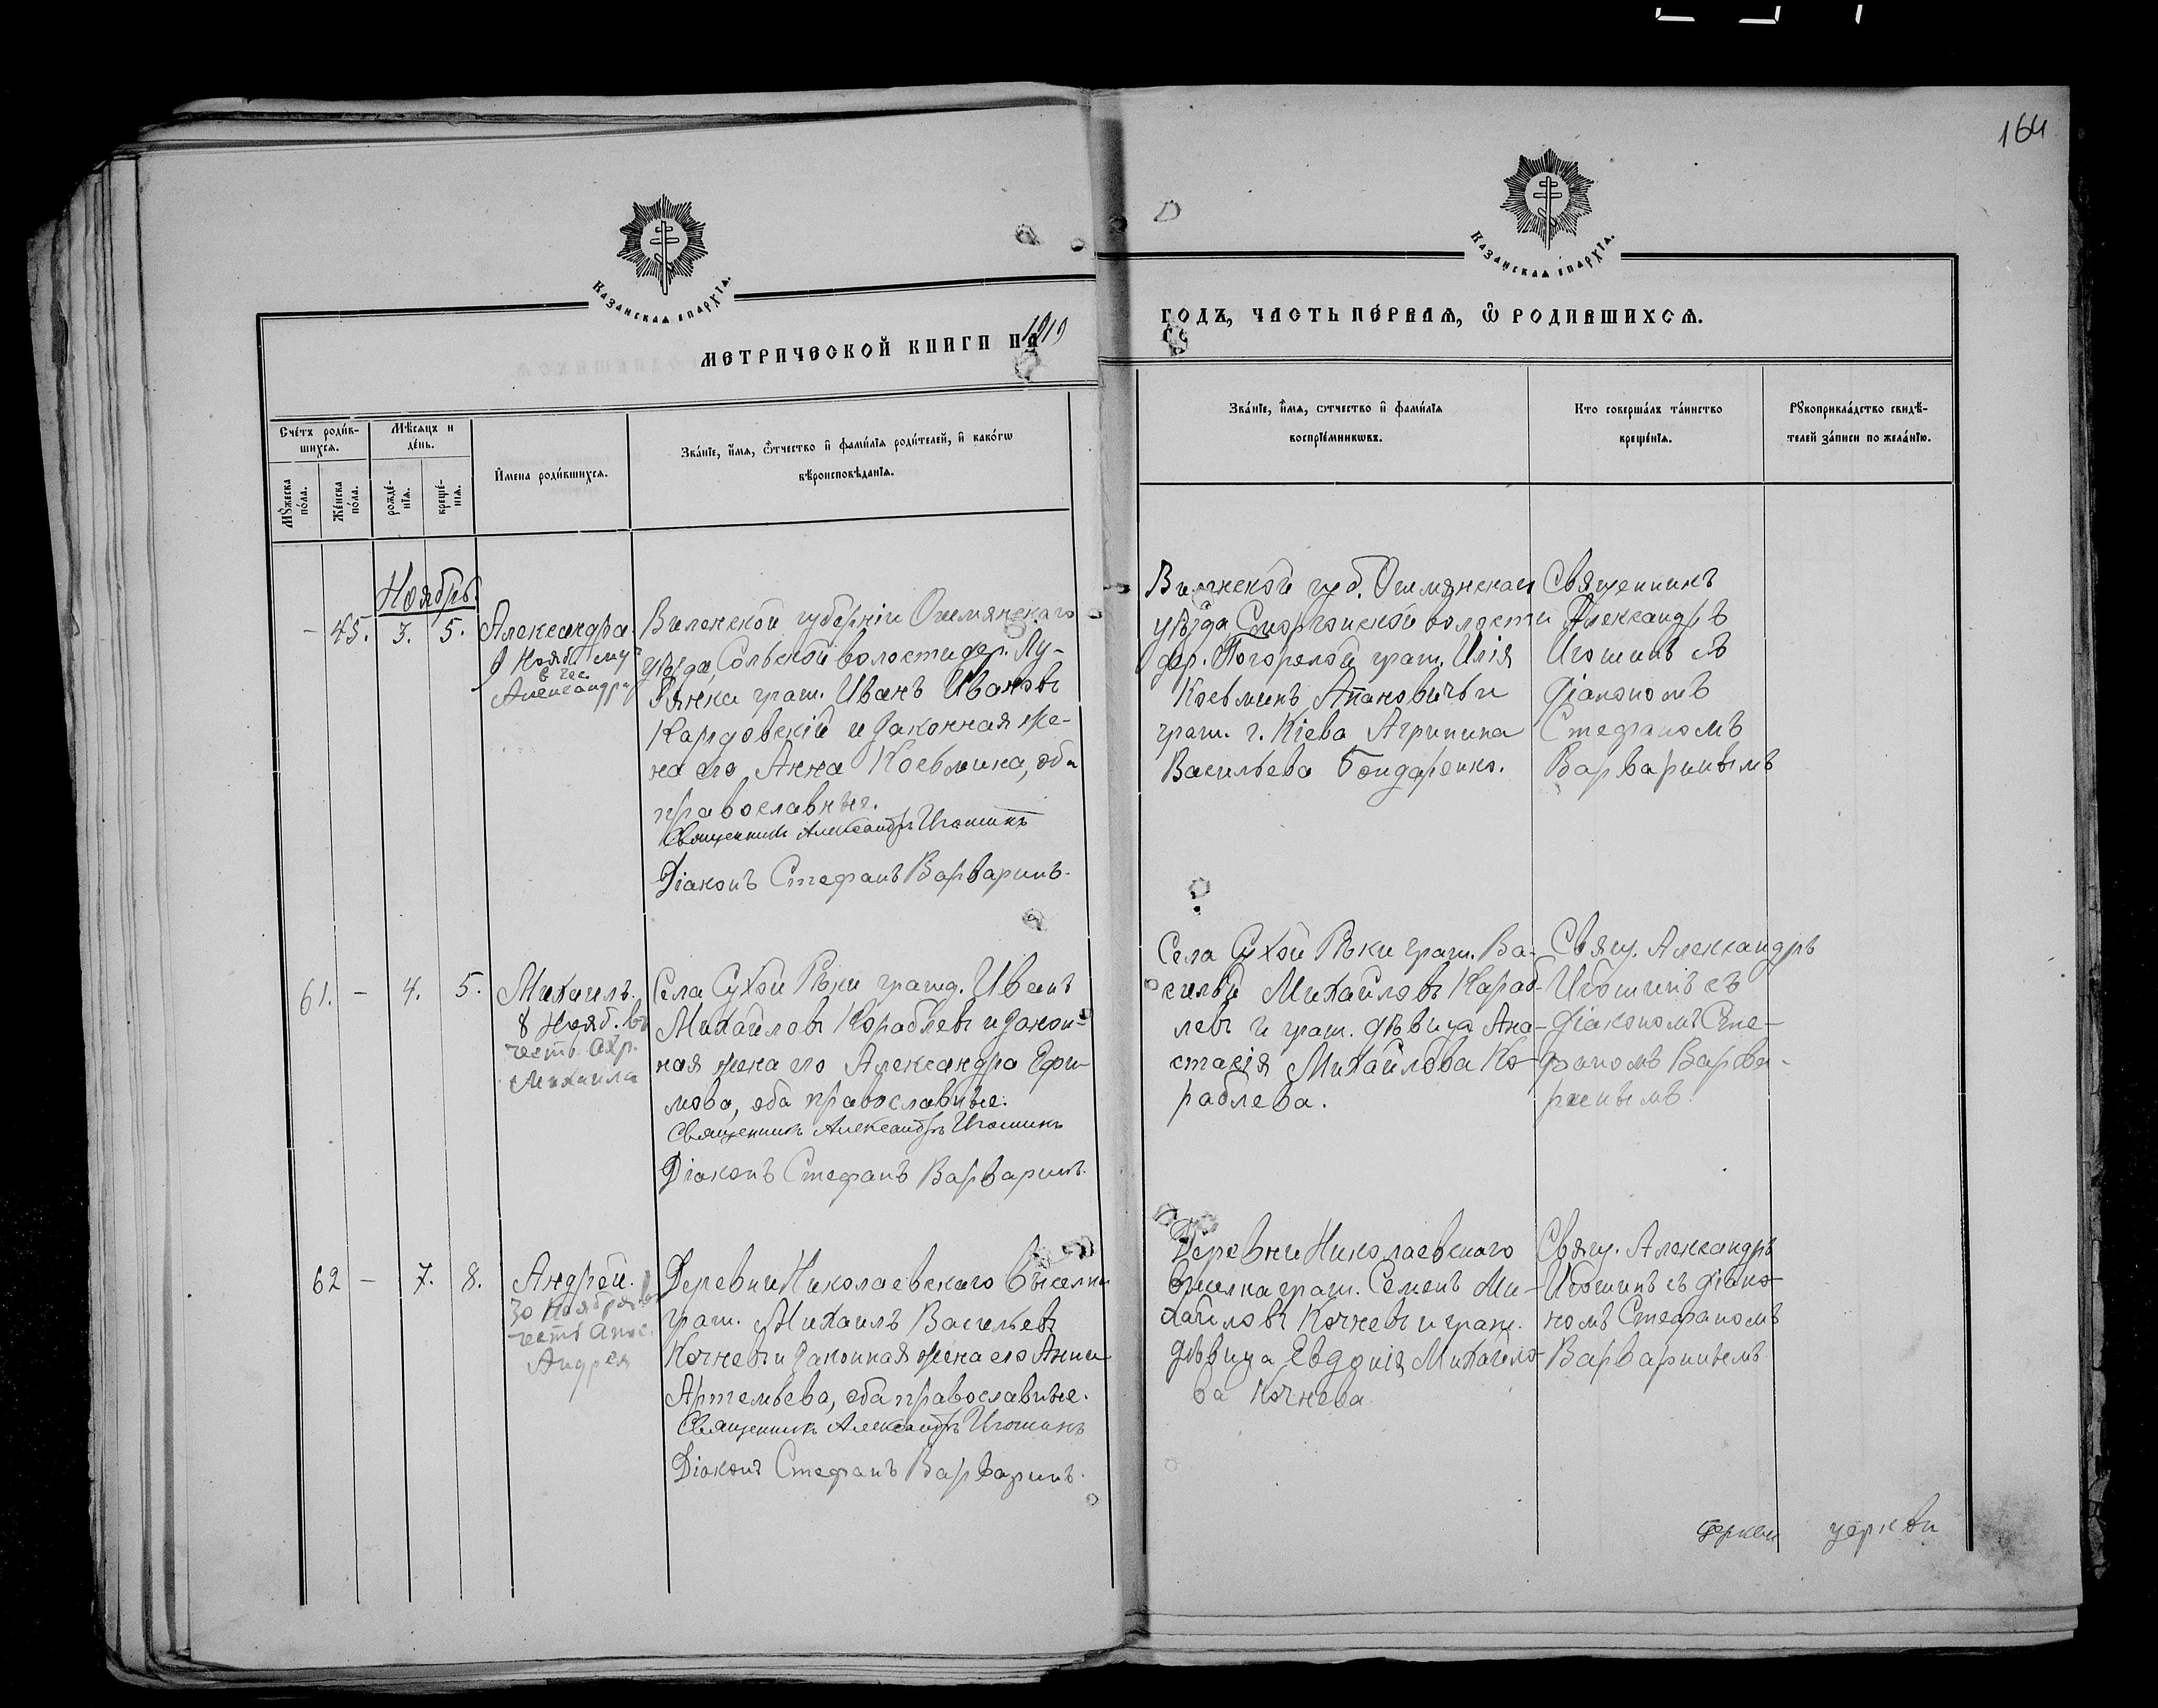 164
Казанская епархїа.
Казанская епархїа.
МЕТРИЧЕСКОЙ КНИГИ НА 1919
ГОДЪ, ЧАСТЬ ПЕ́РВАЯ, Ѽ РОДИ́ВШИХСЯ.
Сче́тъ роди́в-
шихся.
Мѣ́сяцъ и
де́нь.
Мꙋ́жеска
по́ла.
Же́нска
по́ла.
рожде́-
нїя.
креще́-
нїя.
И҆мена роди́вшихся.
Зва́нїе, и҆́мя, ѻ҆́тчество и҆ фами́лїя роди́телей, и҆ како́гѡ
вѣроисповѣ́данїя.
Зва́нїе, и҆́мя, ѻтчество и҆ фами́лїя
воспрїе́мникѡвъ.
Кто соверша́лъ та́инство
креще́нїя.
Рꙋкоприкла́дство свидѣ́-
телей за́писи по жела́нїю.
Ноябрь.
– 45. 3. 5.
Александра.
Александры
Виленской губернiи Ошмянскаго
уѣзда, Сольской волости дер. Лу-
гран. Иванъ Ивановъ
и законная же-
на его Анна Косьмина, оба
православные.
Священникъ Александръ Игошинъ
Дiаконъ Стефанъ Варваринъ.
Виленской губ. Ошмянскаго
уѣзда Сморгонской волости
дер. Погорелой граж. Илiя
Косьминъ Апановичъ и
граж. г. Кiева Агрипина
Васильева Бондаренко.
Священникъ
Александръ
Игошинъ съ
дiакономъ
Стефаномъ
Варваринымъ
61. – 4. 5.
Михаилъ.
8 Нояб. въ
честь Арх.
Михаила
Села Сухой Рѣки гражд. Иванъ
Михайловъ Кораблевъ и закон-
ная жена его Александра Ефи-
мова, оба православные.
Священникъ Александръ Игошинъ
Дiаконъ Стефанъ Варваринъ.
Села Сухой Рѣки граж. Ва-
силiй Михайловъ Кораб-
левъ и граж. дѣвица Ана-
стасiя Михайлова Ко-
раблева.
Свящ. Александръ
Игошинъ съ
дiакономъ Сте-
фаномъ Варва-
ринымъ.
62 – 7. 8.
Андрей.
30 Ноября въ
честь Апос.
Андрея
Деревни Николаевскаго выселка
граж. Михаилъ Васильевъ
Кочневъ и законная жена его Анна
Артемьева, оба православные.
Священникъ Александръ Игошинъ
Дiаконъ Стефанъ Варваринъ.
Деревни Николаевскаго
выселка граж. Семенъ Ми-
хайловъ Кочневъ и граж.
дѣвица Евдокiя Михайло-
ва Кочнева.
Свящ. Александръ
Игошинъ съ дiако-
номъ Стефаномъ
Варваринымъ.
церкви церкви